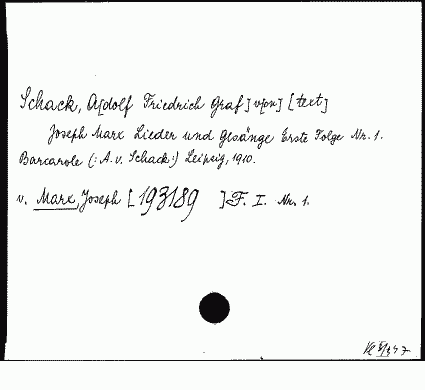 Schack, A[dolf Friedrich Graf] v[on] [text]
Joseph Marx Lieder und Gesänge Erste Folge Nr. 1.
Barcarole (: A. v. Schack :) Leipzig, 1910.
v. Marx, Joseph [193189 ] F. I. Nr. 1.